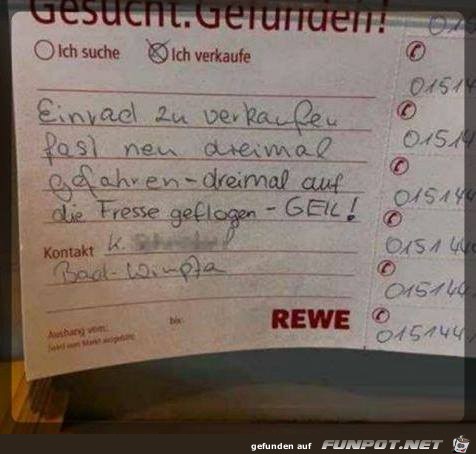 Gesucht.Gefunden!
Ich suche Ich verkaufe
Einrad zu verkaufen
fast neu dreimal
gefahren-dreimal auf
die Fresse geflogen - GEIL!
Kontakt K.
Bad-Wimpfa
Aushang vom: bis:
(wird vom Markt ausgefüllt)
REWE
01514
01514
015144
015144
015144
015144
gefunden auf FUNPOT.NET